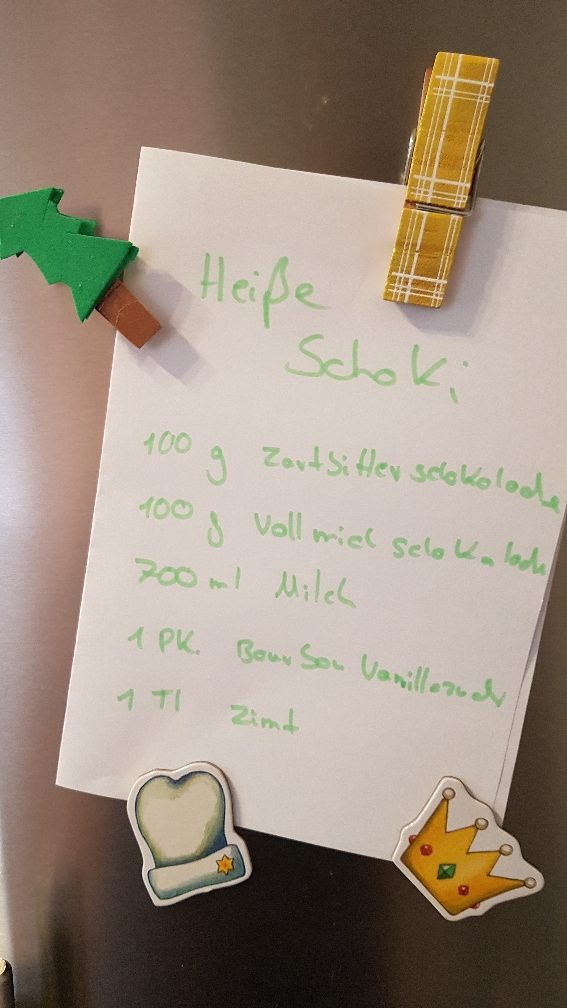 Heiße
Schoki
100 g Zartbitterschokolade
100 g Vollmich schokolade
700 ml Milch
1 PK. Bourbon Vanillezucker
1 Tl Zimt